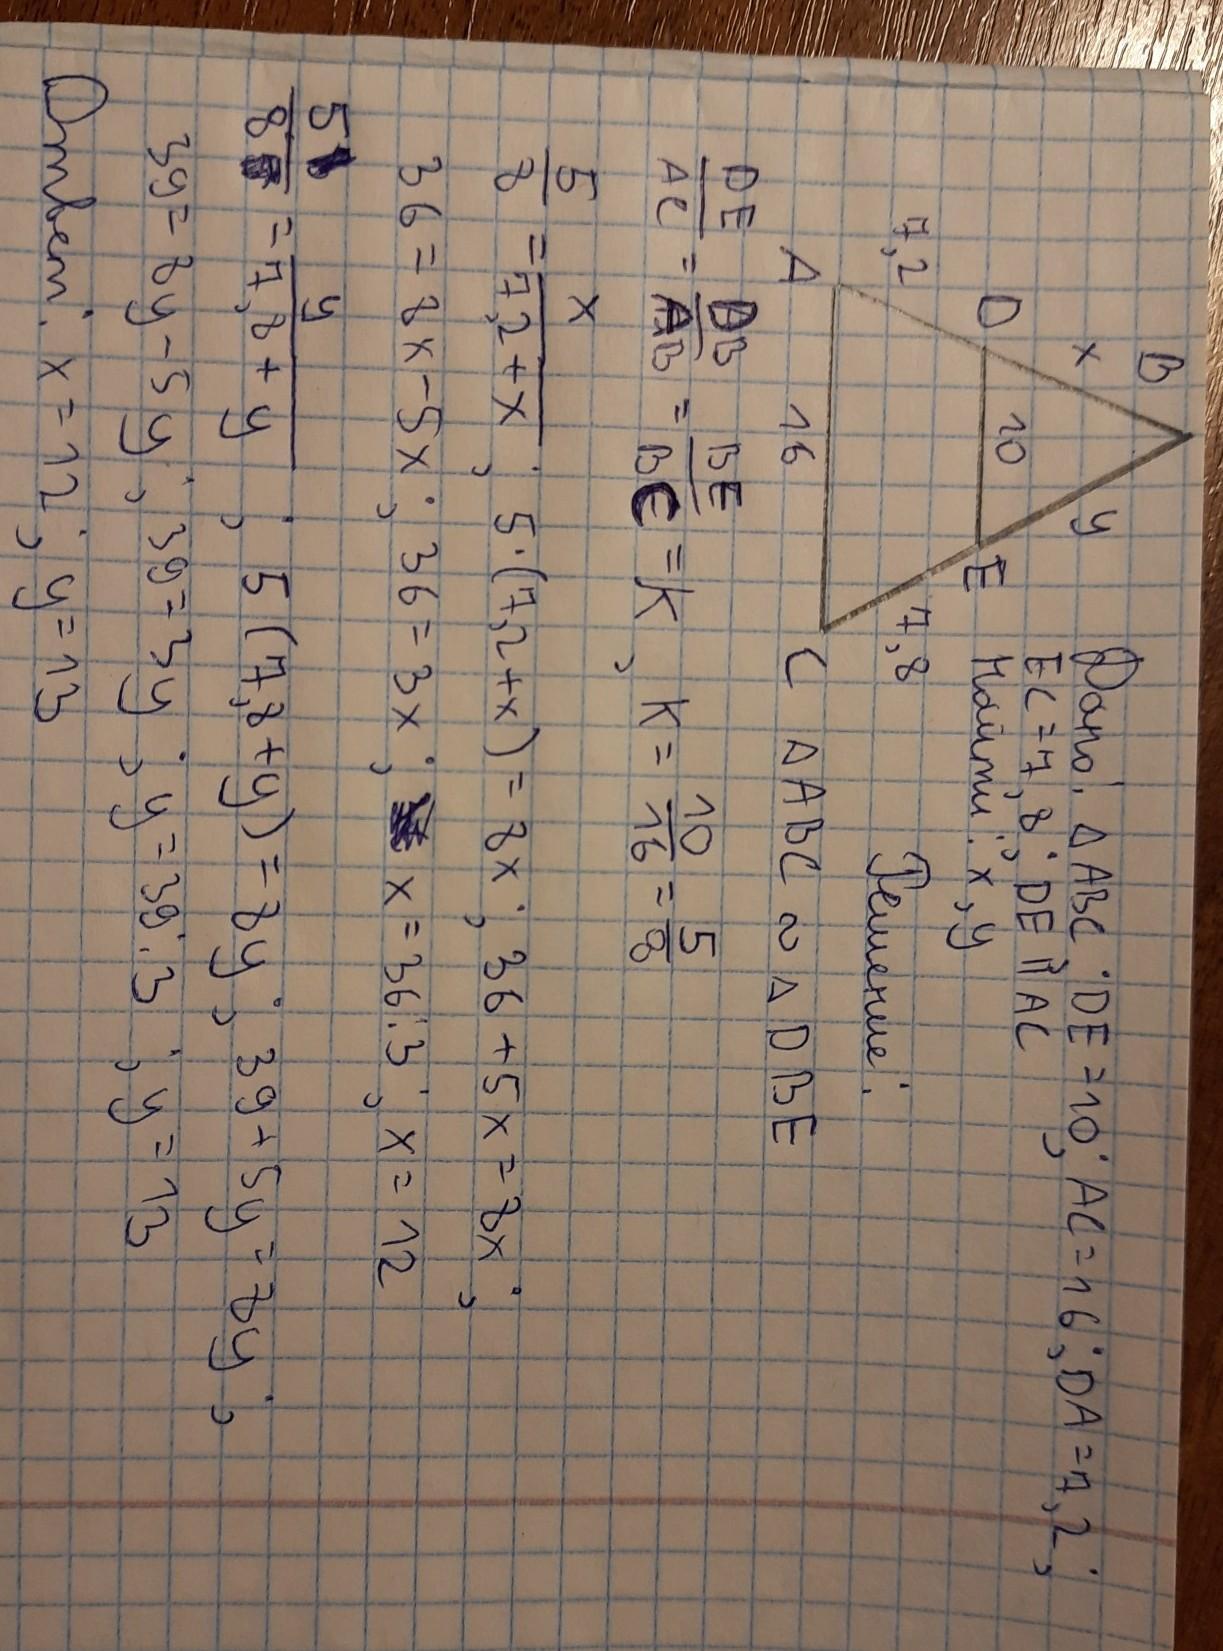 Дано: △ABC; DE=10; AC=16; DA=7,2;
EC=7,8; DE∥AC
Найти: x, y
Решение:
B
x
y
D
10
E
7,2
7,8
A
16
C
△ABC ∾ △DBE
DE/AC = DB/AB = BE/BC = K, K = 10/16 = 5/8
5/8 = x/7,2+x; 5·(7,2+x)=8x; 36+5x=8x;
36=8x-5x; 36=3x; x=36:3; x=12
5/8 = y/7,8+y; 5(7,8+y)=8y; 39+5y=8y;
39=8y-5y; 39=3y; y=39:3; y=13
Ответ: x=12; y=13